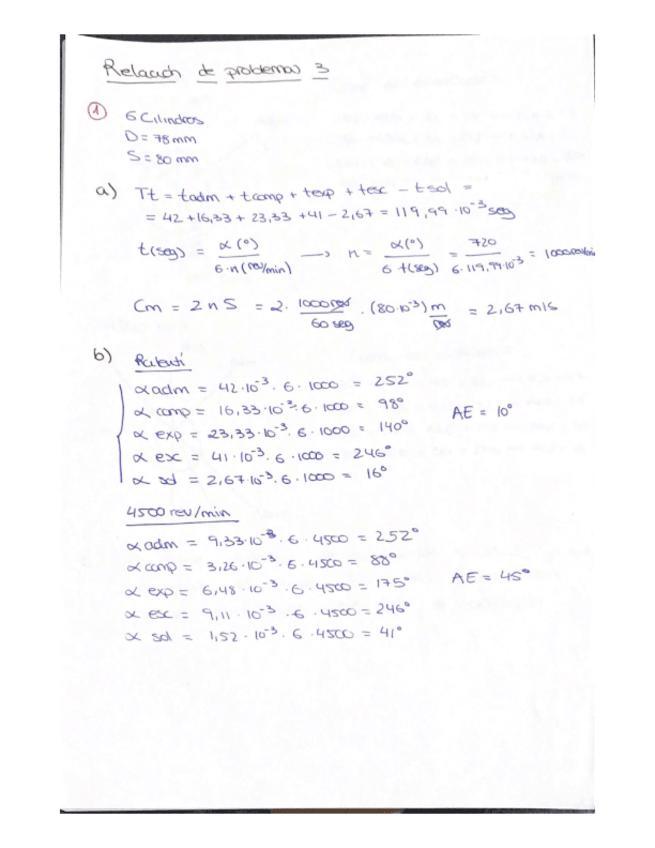 Relación de problemas 3
1
6 Cilindros
D = 78 mm
S = 80 mm
a) Tt = tadm + tcomp + texp + tesc - tsol =
= 42 + 16,33 + 23,33 + 41 - 2,67 = 119,99 · 10⁻³ seg
t(seg) = α(°) / 6·n(rev/min) → n = α(°) / 6 t(seg) = 720 / 6·119,99·10⁻³ = 1000 rev/min
Cm = 2 n S = 2 · 1000 rev / 60 seg · (80·10⁻³) m / rev = 2,67 m/s
b) Ralentí
α adm = 42·10⁻³ · 6 · 1000 = 252°
α comp = 16,33·10⁻³ · 6 · 1000 = 98°
AE = 10°
α exp = 23,33·10⁻³ · 6 · 1000 = 140°
α esc = 41·10⁻³ · 6 · 1000 = 246°
α sol = 2,67·10⁻³ · 6 · 1000 = 16°
4500 rev/min
α adm = 9,33·10⁻³ · 6 · 4500 = 252°
α comp = 3,26·10⁻³ · 6 · 4500 = 88°
α exp = 6,48·10⁻³ · 6 · 4500 = 175°
AE = 45°
α esc = 9,11·10⁻³ · 6 · 4500 = 246°
α sol = 1,52·10⁻³ · 6 · 4500 = 41°